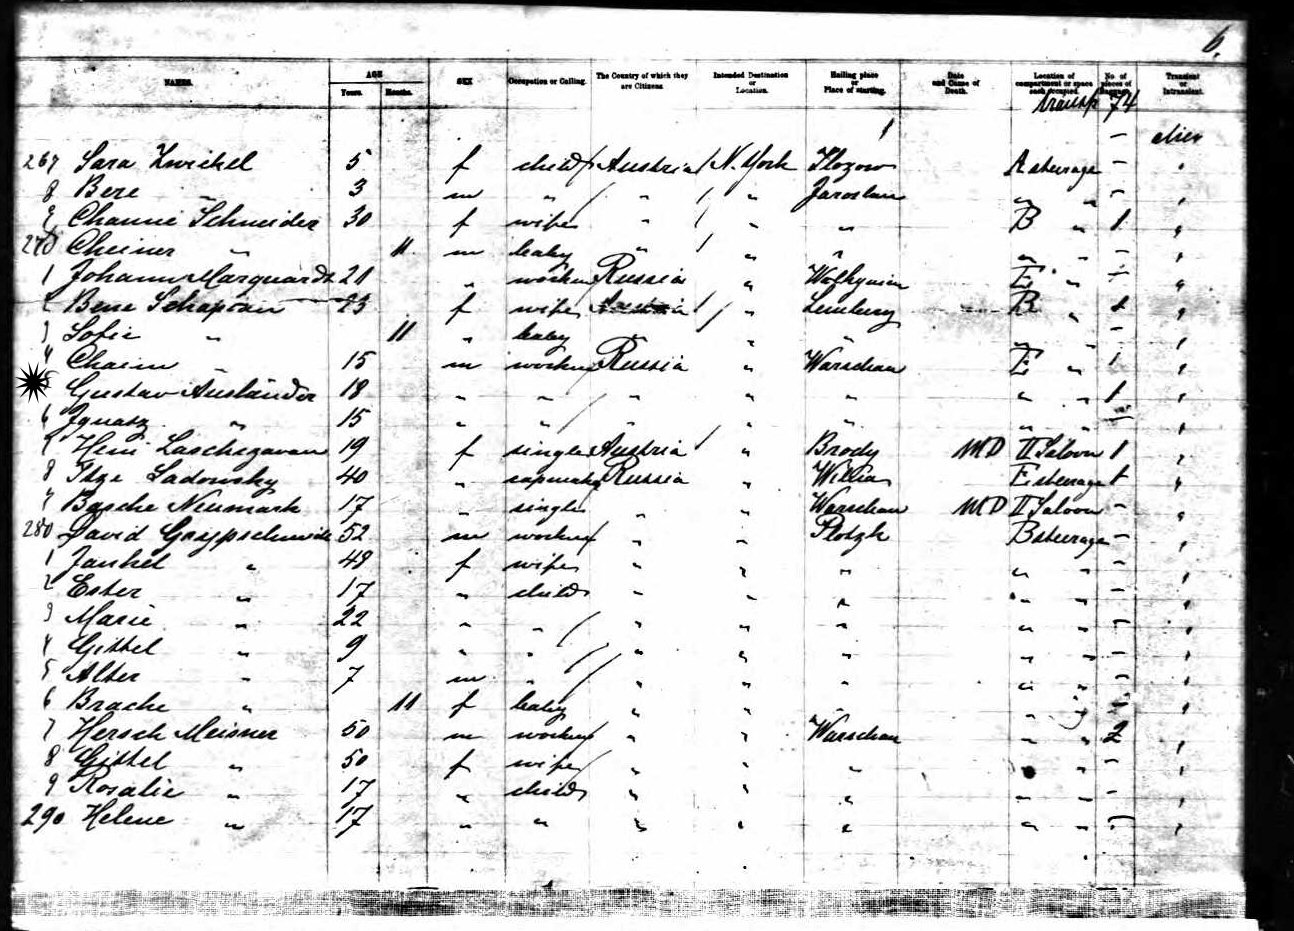 6.
NAMES. AGE Years. Months. SEX Occupation or Calling. The Country of which they are Citizens Intended Destination or Location. Hailing place or Place of starting. Date and Cause of Death. Location of compartment or space each occupied. No. of pieces of Baggage. Transient or Intransient.
transp 74
267 Sara Zwickel 5 f child Austria N. York Tlozow A steerage - "
8 Bere " 3 m " " " Jaroslau " " - "
9 Channe Schneider 30 f wife " " " B " 1 "
270 Cheiner " 11 m baby " " " " " - "
1 Johann Marquardt 21 " worker Russia " Wolhynien E " - "
2 Bene Schapran 23 f wife Austria " Lemberg B "
3 Sofie " 11 " baby " " " " - "
4 Chaim 15 m worker Russia " Warschau E " 1 "
Gustav Ausländer 18 " " " " " " " 1 "
6 Ignatz " 15 " " " " " " " "
7 Heni 19 f single Austria " Brody MD II Saloon 1 "
8 Itze Sadowsky 40 " Russia " Wilna E steerage 1 "
9 Basche Neumark 17 " single " " Warschau MD II Saloon - "
280 David 52 m worker " " Plotzk B steerage - "
1 Jankel " 48 f wife " " " " " - "
2 Ester " 17 " child " " " " " - "
3 Marie " 22 " " " " " " " - "
4 Gittel " 9 " " " " " " " - "
5 Alter " 7 m " " " " " " - "
6 Brache " 11 f baby " " " " " - "
7 Hersch Meisner 50 m worker " " Warschau " " 2 "
8 Gittel " 50 f wife " " " " - "
9 Rosalie " 17 " child " " " " " - "
290 Helene " 17 " " " " " " " - "